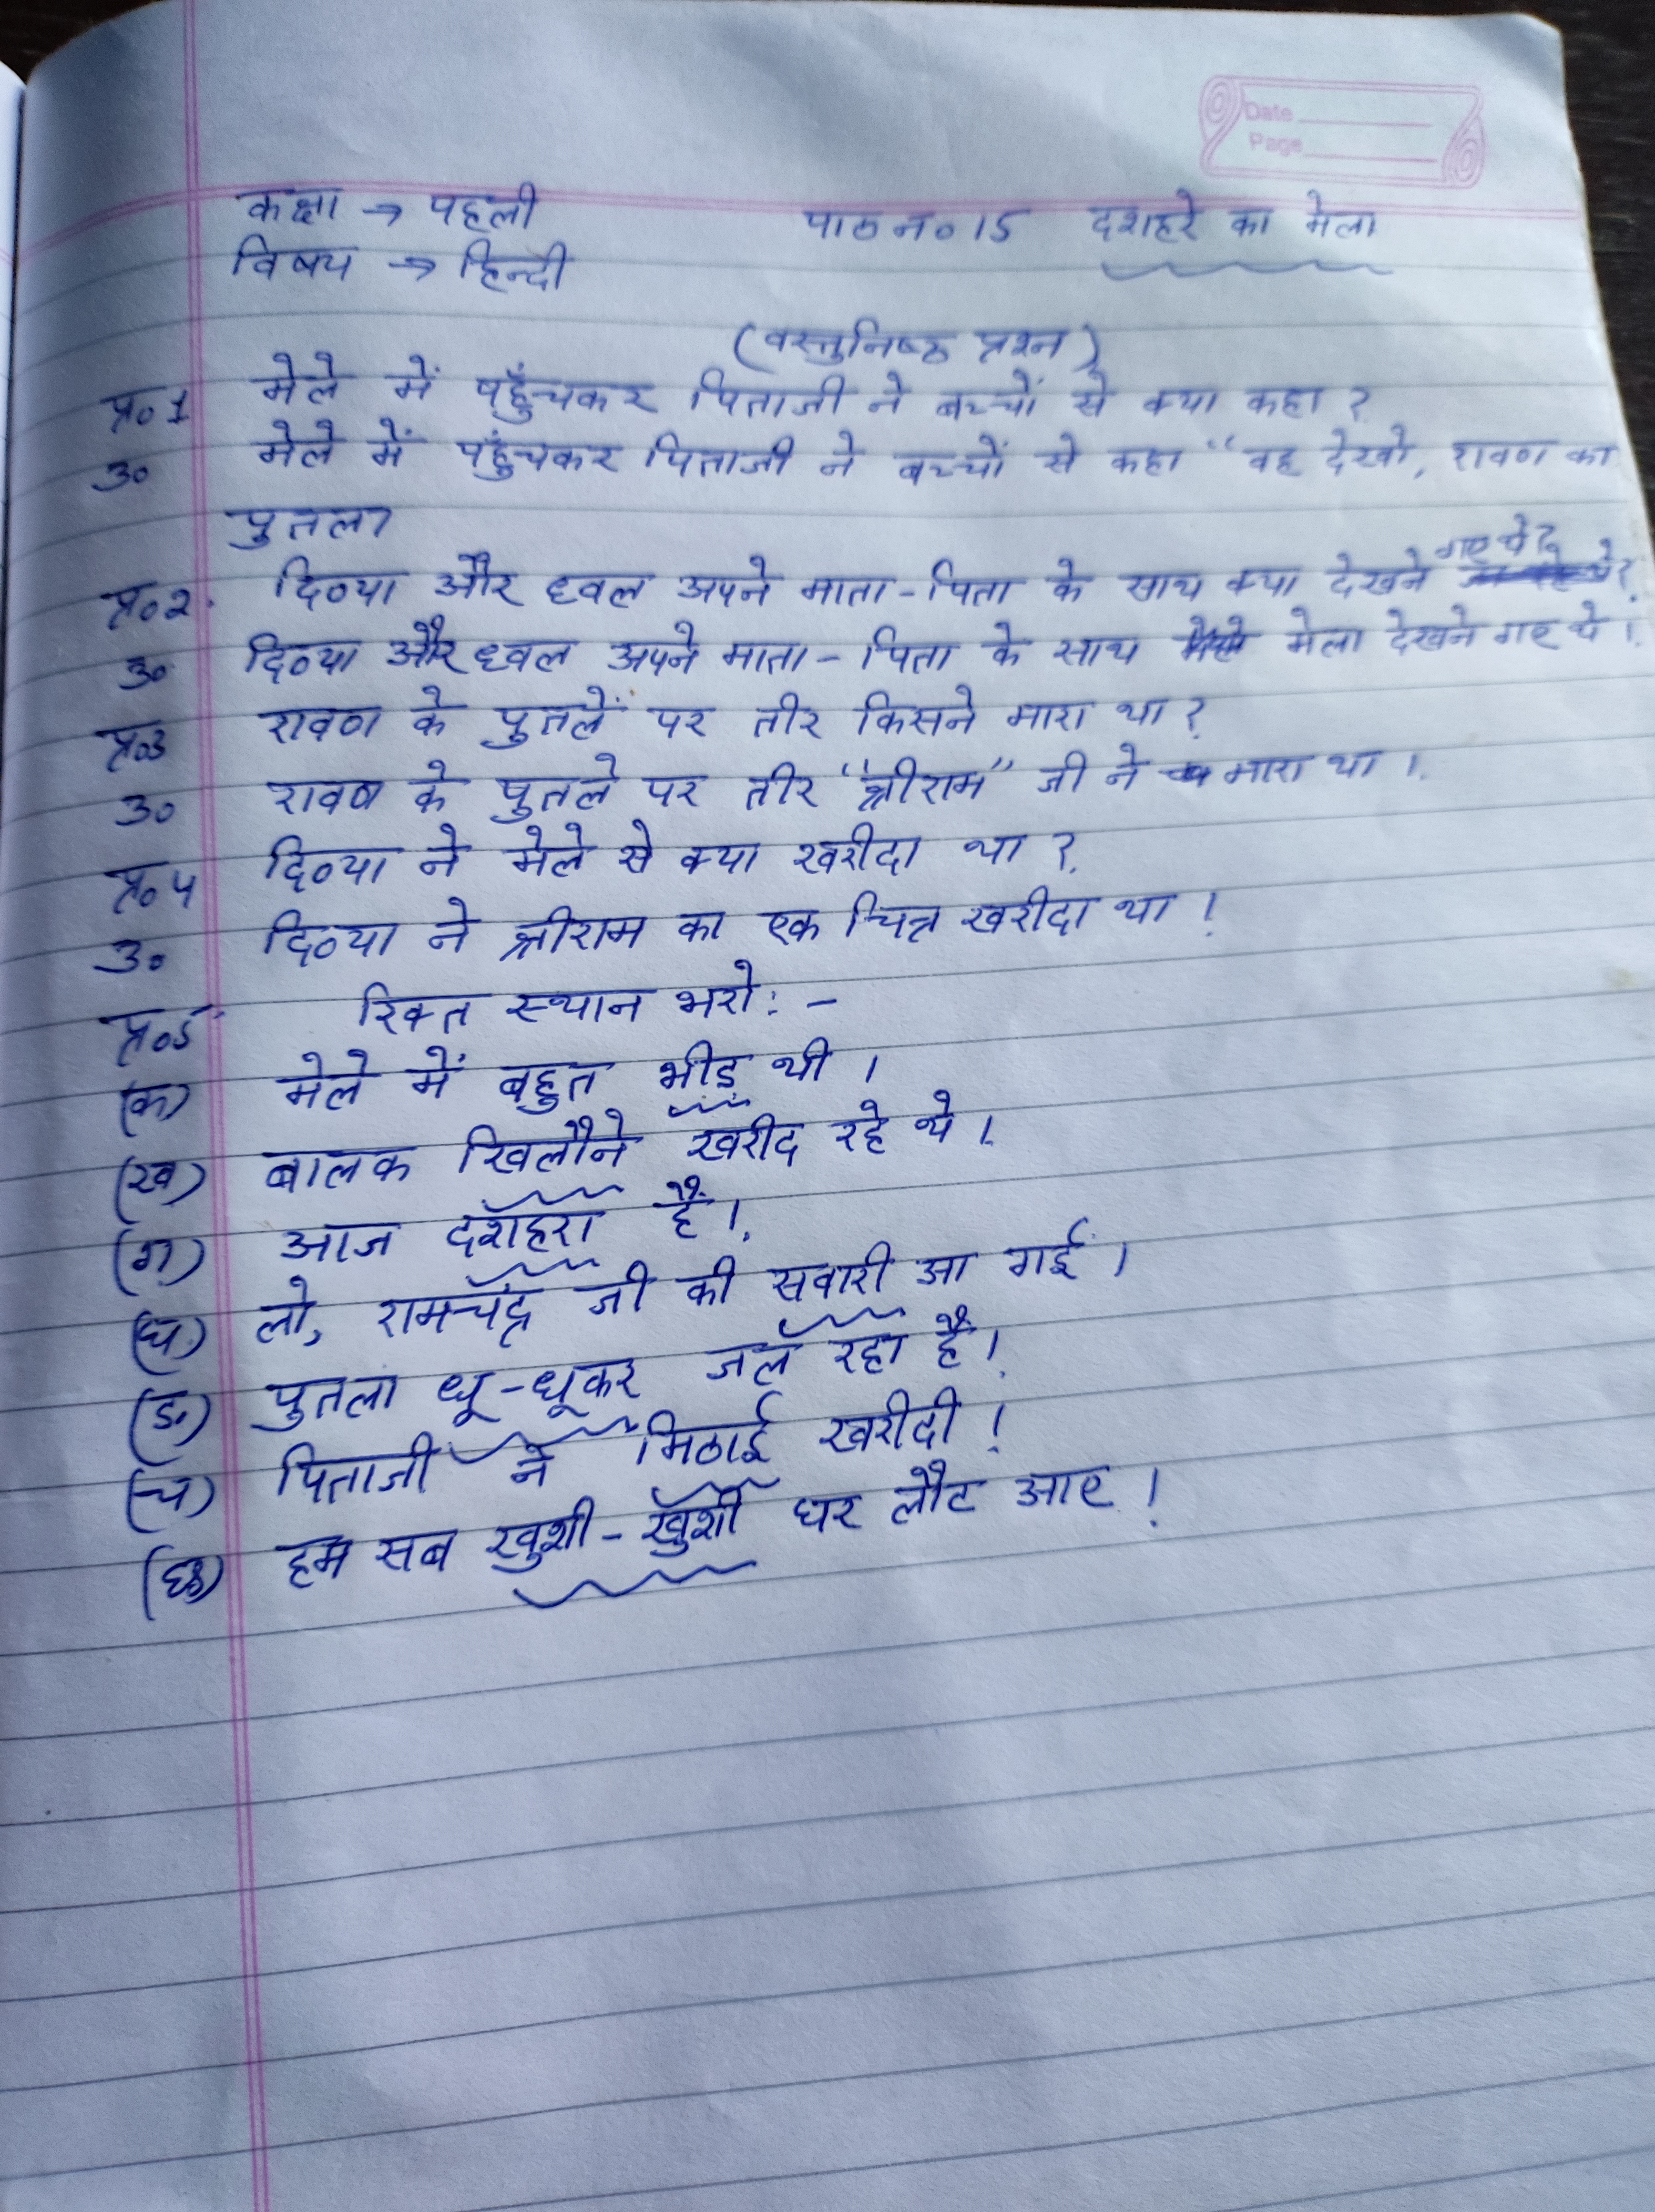 Date
Page
कक्षा → पहली पाठ न० 15 दशहरे का मेला
विषय → हिन्दी
(वस्तुनिष्ठ प्रश्न)
प्र० 1 मेले में पहुँचकर पिताजी ने बच्चों से क्या कहा ?
उ० मेले में पहुंचकर पिताजी ने बच्चों से कहा "वह देखो, रावण का
पुतला
प्र० 2. दिव्या और ध्वल अपने माता-पिता के साथ क्या देखने गए थे?
उ० दिव्या और ध्वल अपने माता-पिता के साथ मेला देखने गए थे ।
प्र०3 रावण के पुतलें पर तीर किसने मारा था ?
उ० रावण के पुतले पर तीर "श्रीराम" जी ने मारा था ।
प्र० 4 दिव्या ने मेले से क्या खरीदा था ?
उ० दिव्या ने श्रीराम का एक चित्र खरीदा था !
प्र०5 रिक्त स्थान भरो: -
(क) मेले में बहुत भीड़ थी ।
(ख) बालक खिलौने खरीद रहे थे ।
(ग) आज दशहरा है ।
(घ) लो, रामचंद्र जी की सवारी आ गई ।
(ड.) पुतला धू-धूकर जल रहा है ।
(च) पिताजी ने मिठाई खरीदी !
(छ) हम सब खुशी-खुशी घर लौट आए !